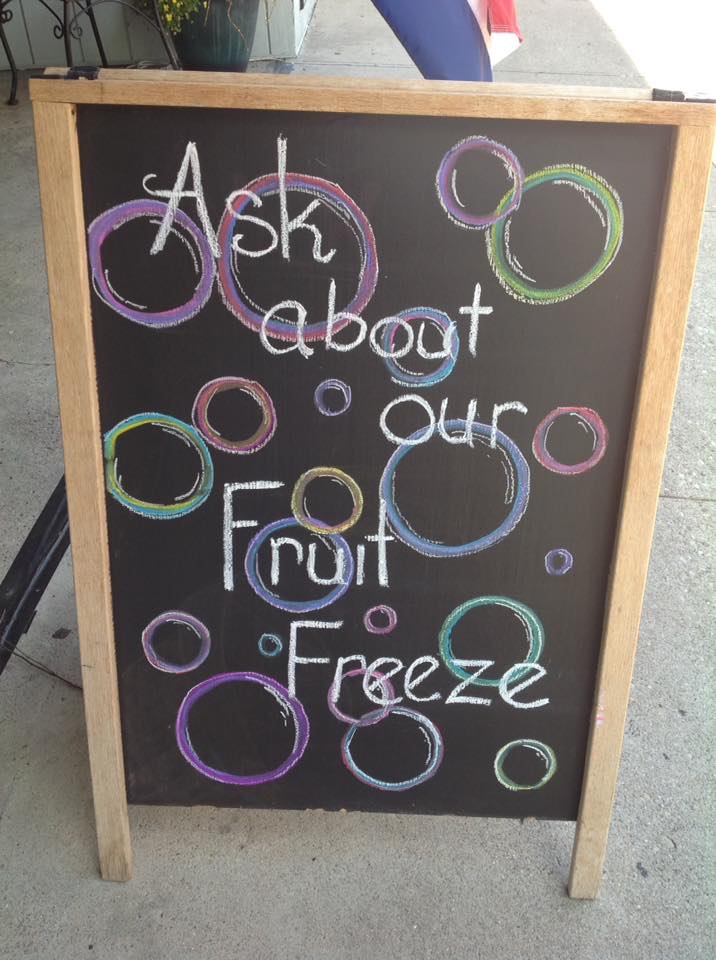 Ask
about
our
Fruit
Freeze